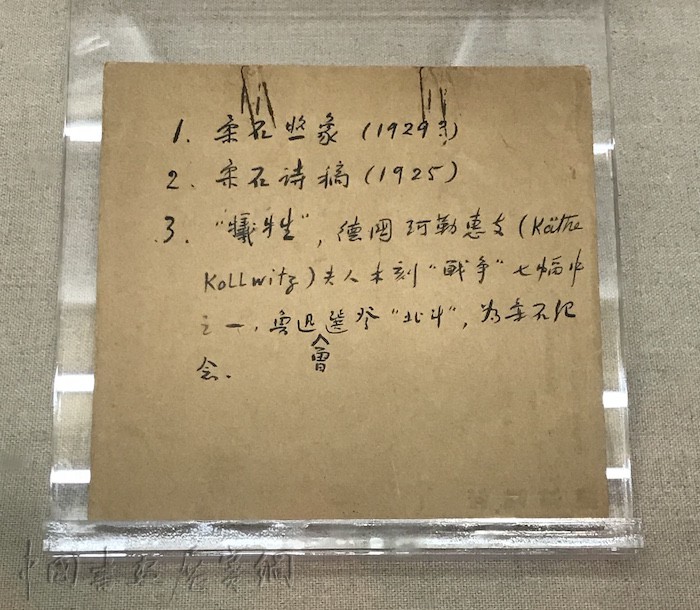 1. 柔石照象 (1929?)
2. 柔石诗稿 (1925)
3. "犠牲", 德國珂勒惠支 (Käthe
Kollwitz) 夫人木刻 "戰争" 七幅中
之一, 魯迅曾選登 "北斗", 为柔石纪
念.